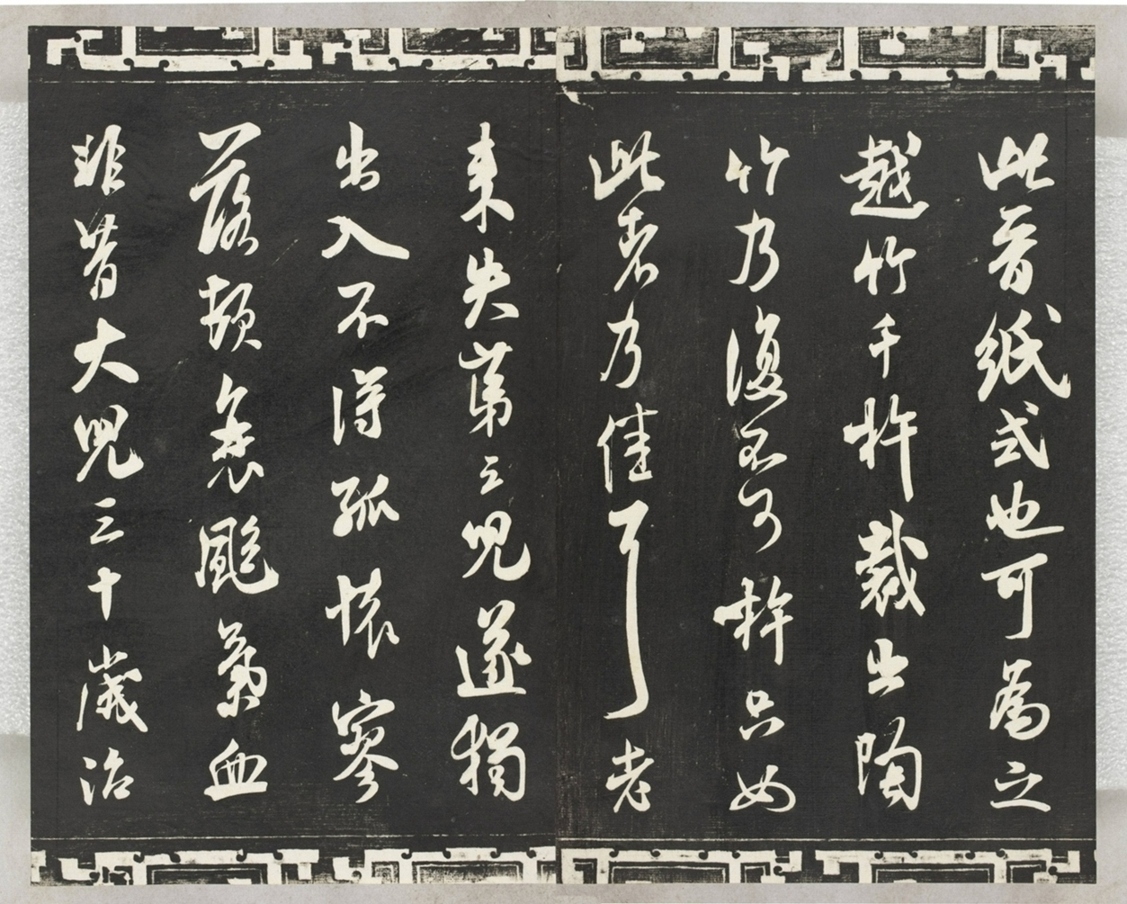 此晉紙式也可爲之
越竹千杵裁出陶
竹乃復不可杵只如
此者乃佳耳老
來失第三兒遂獨
出入不得孤懷寥
落頓衰颺氣血
非昔大兒三十歲治